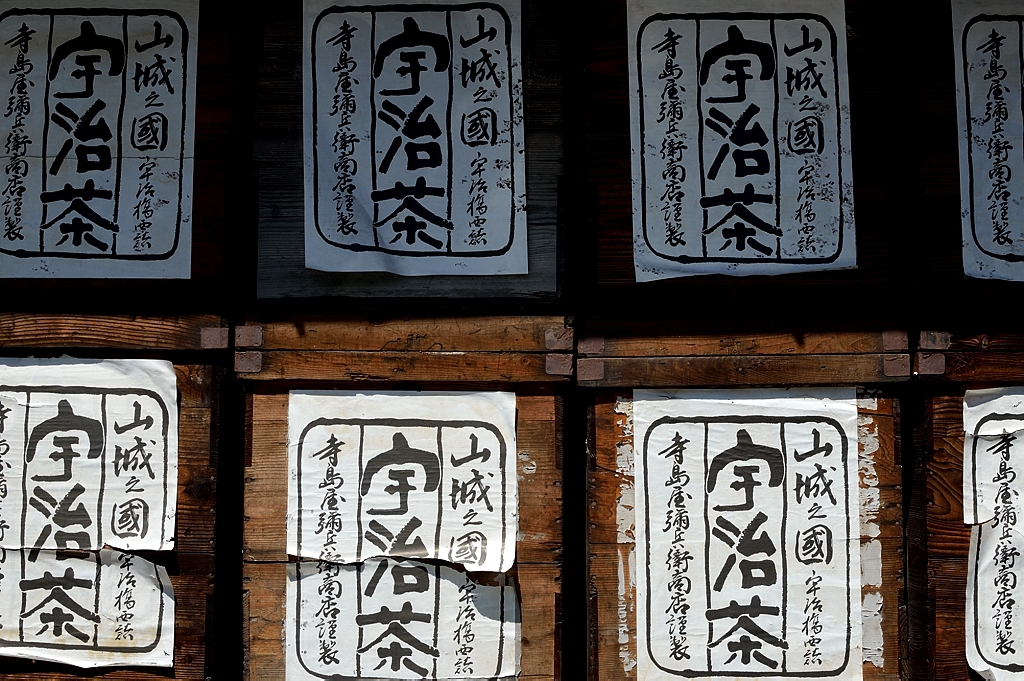 山城之國 宇治橋西詰
宇治茶
寺島屋彌兵衛商店謹製
山城之國 宇治橋西詰
宇治茶
寺島屋彌兵衛商店謹製
山城之國 宇治橋西詰
宇治茶
寺島屋彌兵衛商店謹製
寺島屋彌兵衛商店謹製
山城之國 宇治橋西詰
宇治茶
山城之國 宇治橋西詰
宇治茶
寺島屋彌兵衛商店謹製
山城之國 宇治橋西詰
宇治茶
寺島屋彌兵衛商店謹製
寺島屋彌兵衛商店謹製